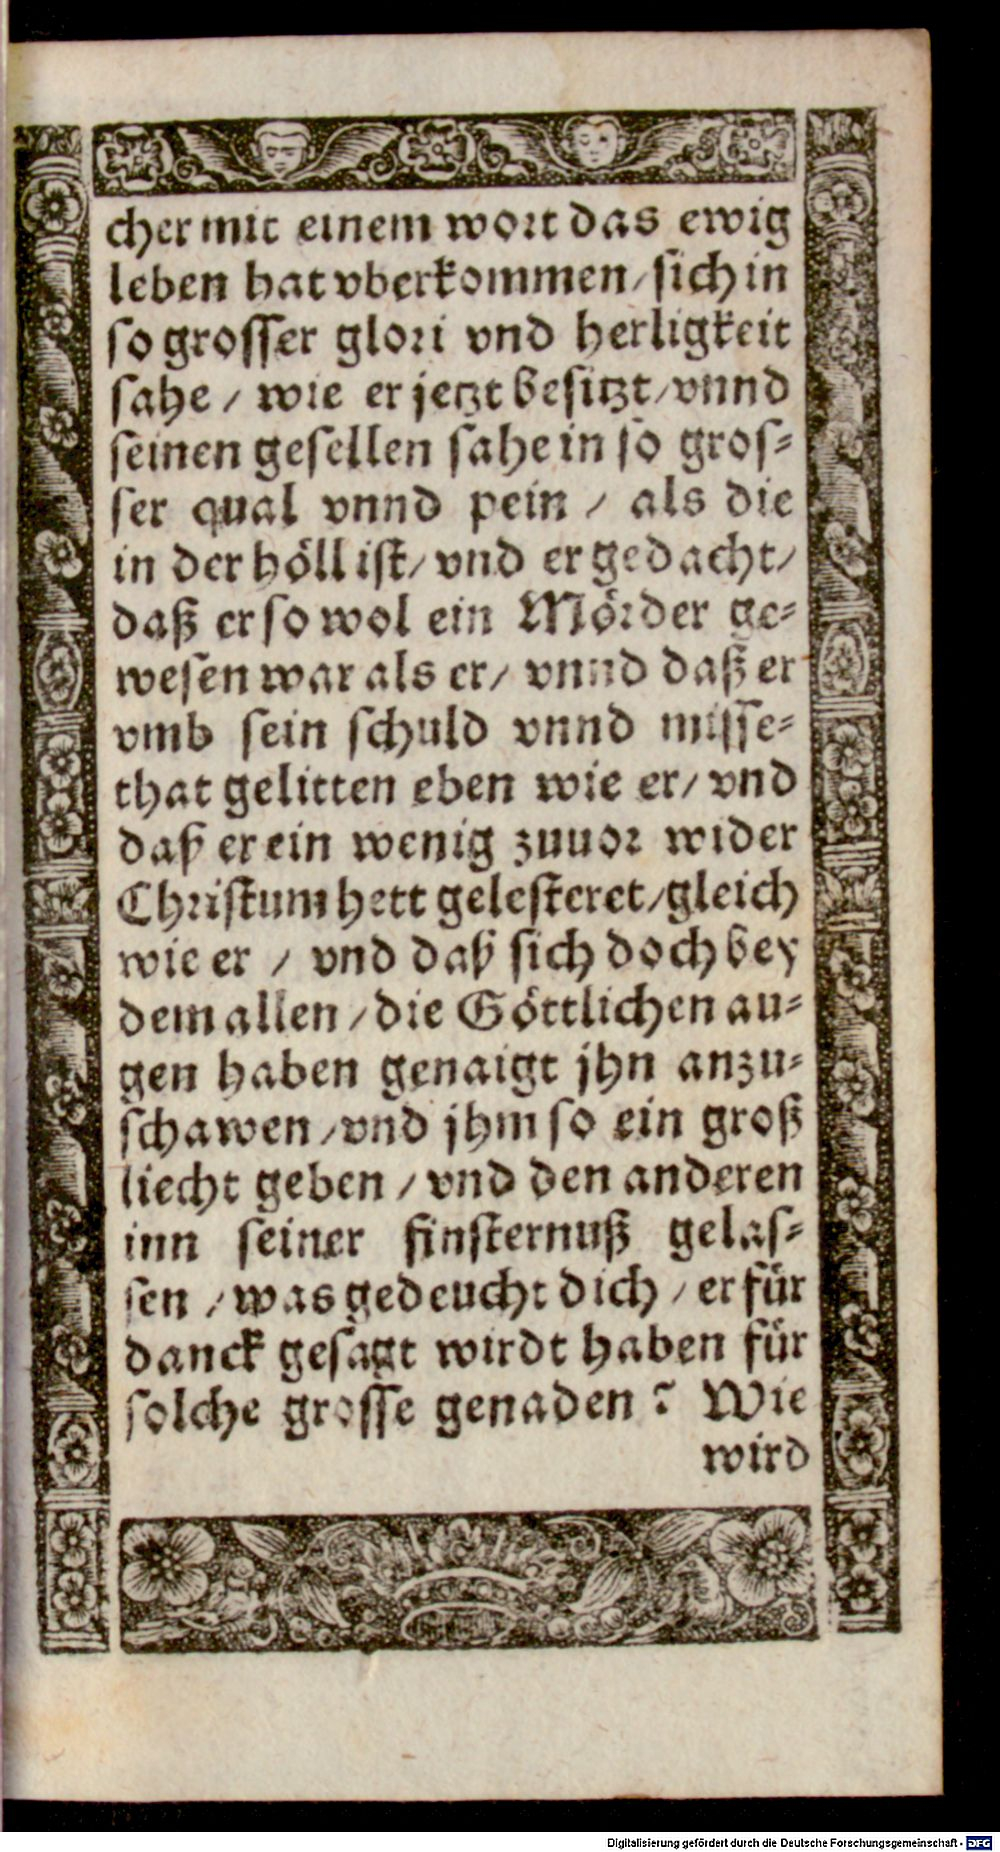 cher mit einem wort das ewig
leben hat vberkommen / sich in
so grosser glori vnd herligkeit
sahe / wie er jetzt besitzt / vnnd
seinen gesellen sahe in so gros-
ser qual vnnd pein / als die
in der höll ist / vnd er gedacht /
daß er so wol ein Mörder ge-
wesen war als er / vnnd daß er
vmb sein schuld vnnd misse-
that gelitten eben wie er / vnd
daß er ein wenig zuuor wider
Christum hett gelesteret / gleich
wie er / vnd daß sich doch bey
dem allen / die Göttlichen au-
gen haben genaigt jhn anzu-
schawen / vnd jhm so ein groß
liecht geben / vnd den anderen
inn seiner finsternuß gelas-
sen / was gedeucht dich / er für
danck gesagt wirdt haben für
solche grosse genaden? Wie
wird
Digitalisierung gefördert durch die Deutsche Forschungsgemeinschaft - DFG